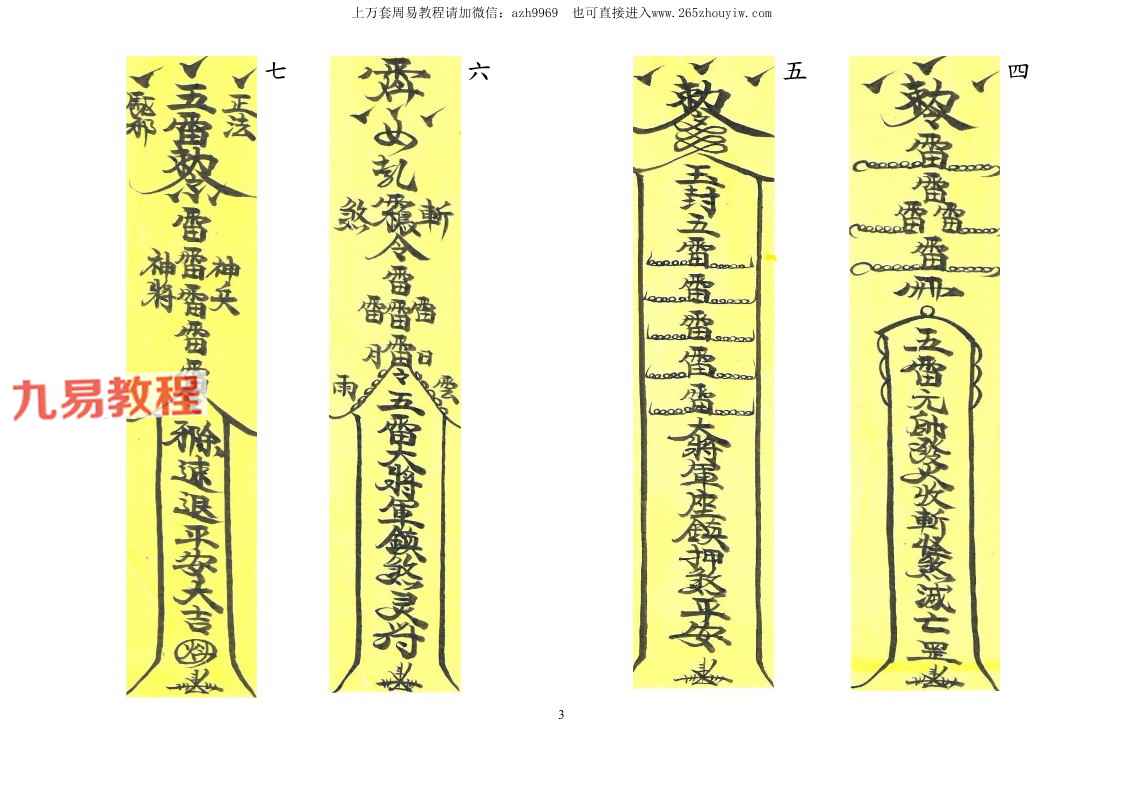 上万套周易教程请加微信：azh9969 也可直接进入www.265zhouyiw.com
四
敕令
雷
雷
雷雷
雷
五雷元帥發火收斬
煞滅亡罡
五
敕
玉封五雷
雷
雷
雷
雷
大將軍座鎮押煞平安
六
煞 斬
令
雷
雷雷雷
雷
月 日
令
雨 雲
五雷大將軍鎮煞灵符
七
正法
五雷敕令
邪
雷
神兵
雷
神將
雷
雷
雷
除速退平安大吉
九易教程
3